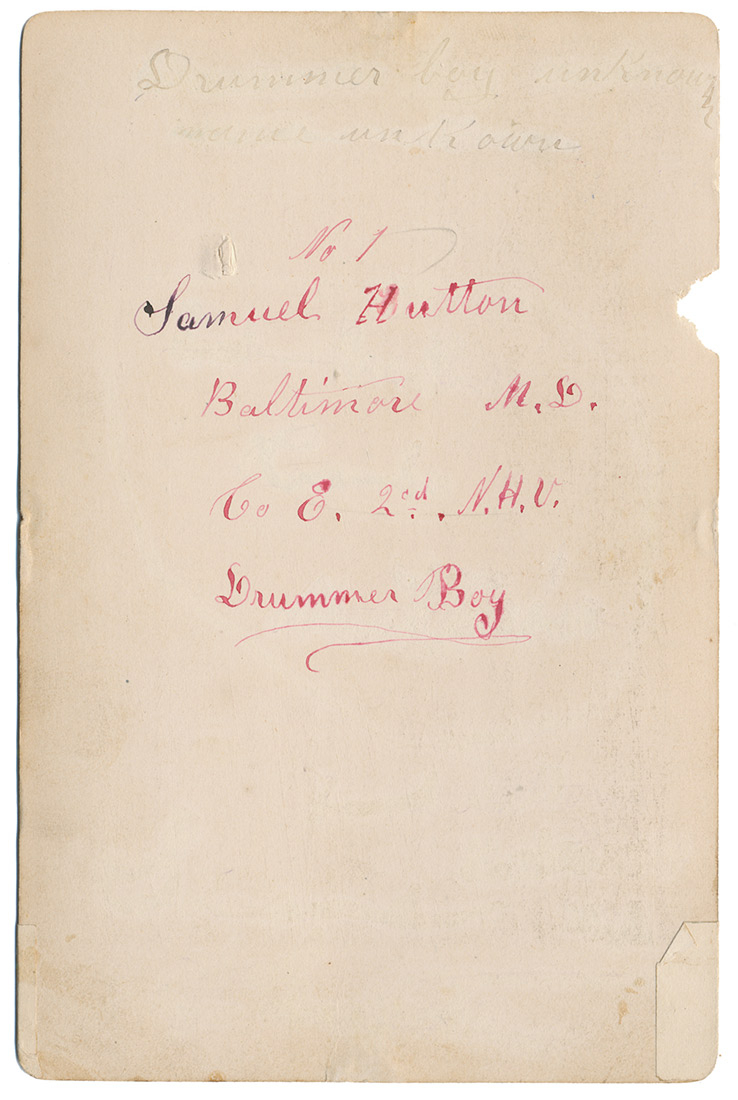 Drummer boy unknown
name unkown
No 1
Samuel Hutton
Baltimore M.D.
Co E. 2nd. N.H.V.
Drummer Boy